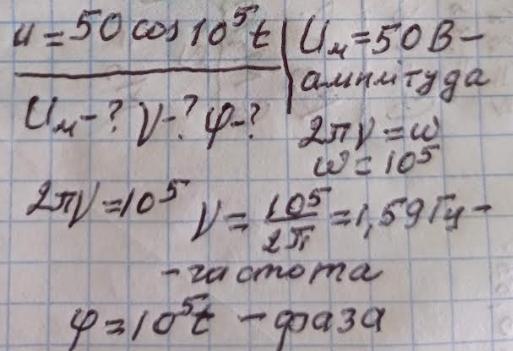 u = 50 cos 10⁵t
Uм = 50 В –
амплітуда
Uм – ? ν – ? φ – ?
2πν = ω
ω = 10⁵
2πν = 10⁵ ν = 10⁵/2π = 1,59 Гц –
– частота
φ = 10⁵t – фаза